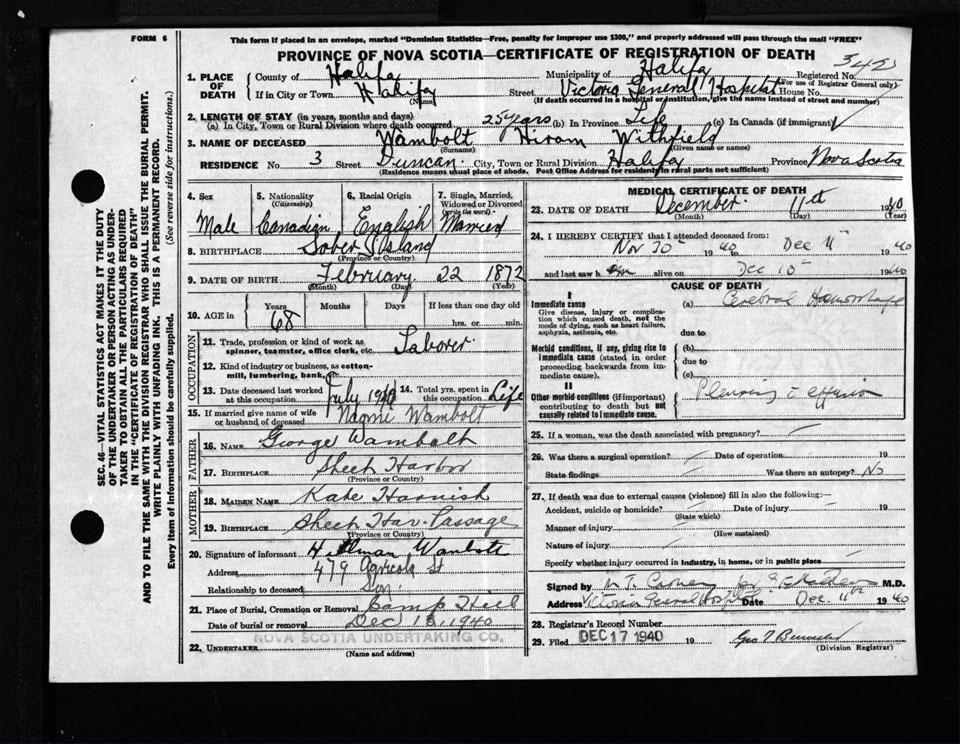 FORM 6
This form if placed in an envelope, marked "Dominion Statistics—Free, penalty for improper use $300," and properly addressed will pass through the mail "FREE"
PROVINCE OF NOVA SCOTIA—CERTIFICATE OF REGISTRATION OF DEATH
1. PLACE OF DEATH
County of Halifax Municipality of Halifax Registered No.
(For use of Registrar General only)
If in City or Town Halifax Street Victoria General Hospital House No.
(Name) (If death occurred in a hospital or institution, give the name instead of street and number)
2. LENGTH OF STAY (in years, months and days)
(a) In City, Town or Rural Division where death occurred 25 years (b) In Province Life (c) In Canada (if immigrant)
3. NAME OF DECEASED Wambolt Hiram Withfield
(Surname) (Given name or names)
RESIDENCE No 3 Street Duncan City, Town or Rural Division Halifax Province Nova Scotia
(Residence means usual place of abode. Post Office Address for residents in rural parts not sufficient)
4. Sex
Male
5. Nationality
(Citizenship)
Canadian
6. Racial Origin
English
7. Single, Married, Widowed or Divorced
(write the word)
Married
8. BIRTHPLACE Sober Island
(Province or Country)
9. DATE OF BIRTH February 22 1872
(Month) (Day) (Year)
10. AGE in
Years Months Days If less than one day
68 hrs. or min.
OCCUPATION
11. Trade, profession or kind of work as spinner, teamster, office clerk, etc. Laborer
12. Kind of industry or business, as cotton-mill, lumbering, bank, etc.
13. Date deceased last worked at this occupation July 1940
14. Total yrs. spent in this occupation Life
15. If married give name of wife or husband of deceased Naomi Wambolt
FATHER
16. NAME George Wambolt
17. BIRTHPLACE Sheet Harbor
(Province or Country)
MOTHER
18. MAIDEN NAME Kate Harnish
19. BIRTHPLACE Sheet Har. Passage
(Province or Country)
20. Signature of informant Wambolt
Address 479 Agricola St
Relationship to deceased Son
21. Place of Burial, Cremation or Removal Camp Hill
Date of burial or removal Dec 13, 1940
NOVA SCOTIA UNDERTAKING CO.
22. UNDERTAKER
(Name and address)
MEDICAL CERTIFICATE OF DEATH
23. DATE OF DEATH December 11th 1940
(Month) (Day) (Year)
24. I HEREBY CERTIFY that I attended deceased from:
Nov 30 1940 to Dec 11 1940
and last saw h im alive on Dec 10 1940
CAUSE OF DEATH
I
Immediate cause
Give disease, injury or complication which caused death, not the mode of dying, such as heart failure, asphyxia, asthenia, etc.
(a) Cerebral Haemorrhage
due to
Morbid conditions, if any, giving rise to immediate cause (stated in order proceeding backwards from immediate cause).
(b)
due to
(c)
II
Other morbid conditions (if important) contributing to death but not causally related to immediate cause.
Pleurisy c effusion
25. If a woman, was the death associated with pregnancy?
26. Was there a surgical operation? Date of operation 19
State findings Was there an autopsy? No
27. If death was due to external causes (violence) fill in also the following:—
Accident, suicide or homicide? Date of injury 19
(State which)
Manner of injury
(How sustained)
Nature of injury
Specify whether injury occurred in Industry, in home, or in public place
Signed by M.D.
Address Victoria General Hospital Date Dec 11th 1940
28. Registrar's Record Number
29. Filed DEC 17 1940 19
(Division Registrar)
SEC. 46—VITAL STATISTICS ACT MAKES IT THE DUTY
OF THE UNDERTAKER OR PERSON ACTING AS UNDERTAKER TO OBTAIN ALL THE PARTICULARS REQUIRED
IN THE "CERTIFICATE OF REGISTRATION OF DEATH"
AND TO FILE THE SAME WITH THE DIVISION REGISTRAR WHO SHALL ISSUE THE BURIAL PERMIT.
WRITE PLAINLY WITH UNFADING INK. THIS IS A PERMANENT RECORD.
Every item of Information should be carefully supplied. (See reverse side for instructions.)